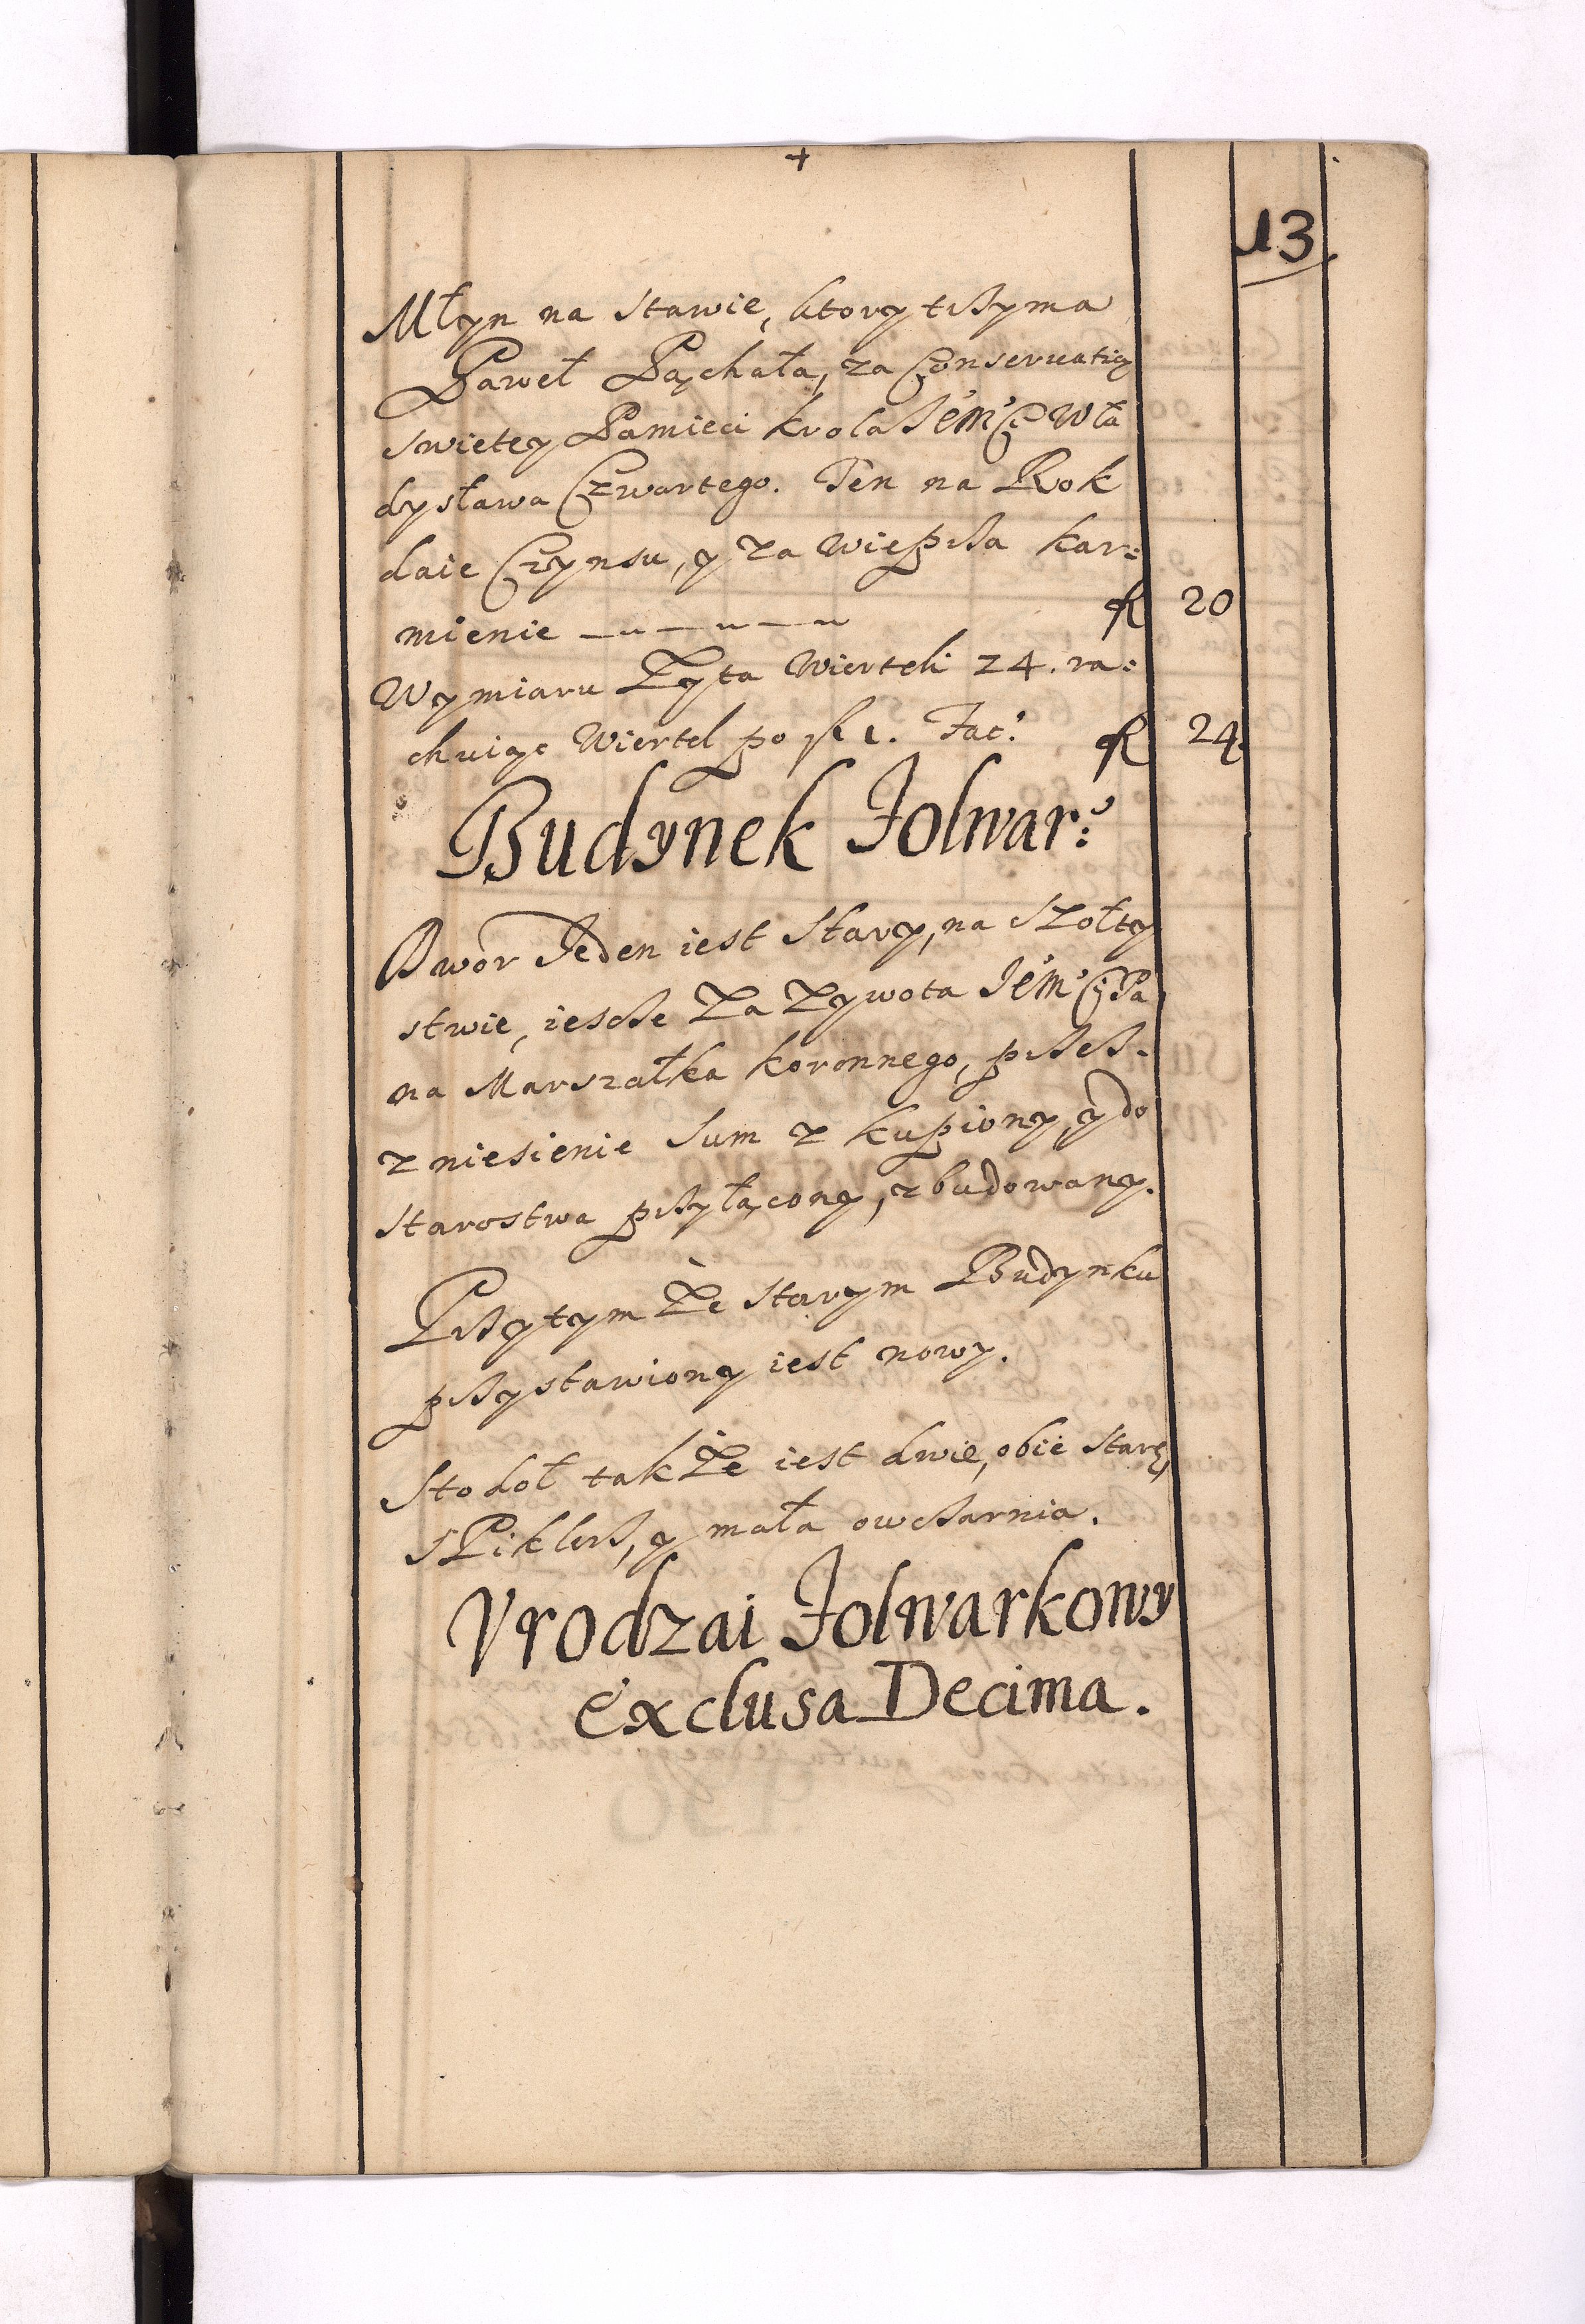 +
13
Młyn na stawie, ktory trzyma
Paweł Pąchała, za Conservatią
swietey Pamieci krola JEM Ci Wła
dysława Czwartego. Ten na Rok
daie Czynsu, y za wieprza kar:
mienie fl 20
Wymiaru Zyta Wierteli 24. ra:
chuiąc Wiertel po fl 1. Fac: fl 24
Budynek Folwar:
Dwor Jeden iest stary, na szołty
stwie, iescze za zywota JEM Ci Pa
na Marszałka koronnego, przez
zniesienie sum z kupiony, y do
starostwa przyłącony, zbudowany.
Przytym że starym Budynku
przystawiony iest nowy.
Stodoł także iest dwie, obie stare,
sPiklerz, y mała owczarnia.
Vrodzai Folwarkowy
Exclusa Decima.